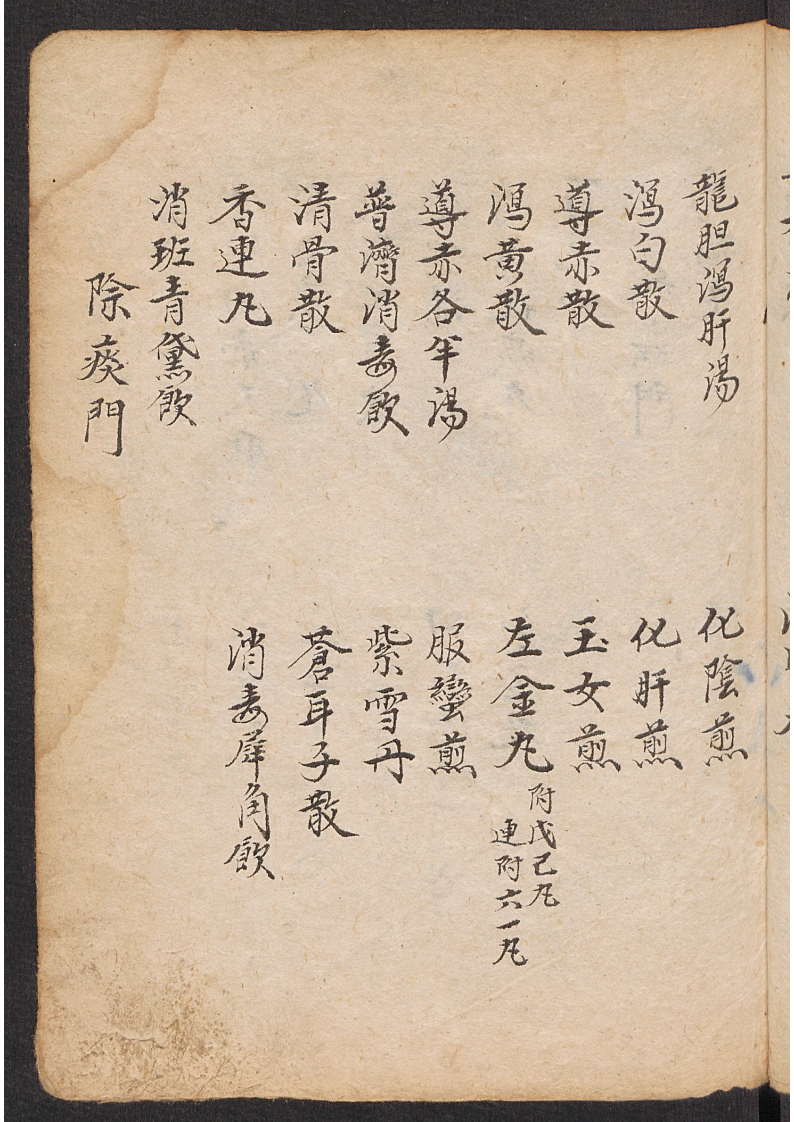 龍胆瀉肝湯
化陰煎
瀉白散
化肝煎
導赤散
玉女煎
瀉黃散
左金丸
附戊己丸
連附六一丸
導赤各半湯
服蠻煎
普濟消毒飲
紫雪丹
清骨散
蒼耳子散
香連丸
消毒犀角飲
消班青黛飲
除痰門